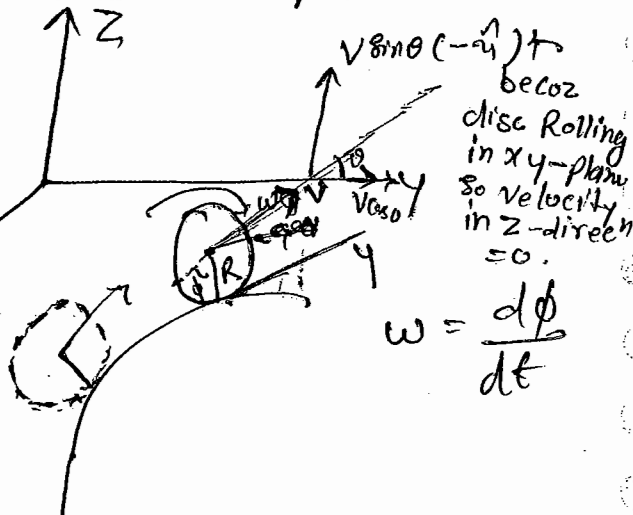 Z
V sinθ (-x̂) ↑
becoz
disc Rolling
in xy-plane
so velocity
in Z-direcⁿ
=0.
θ
V
y
Vcosθ
φ
R
y
ω = dφ/dt